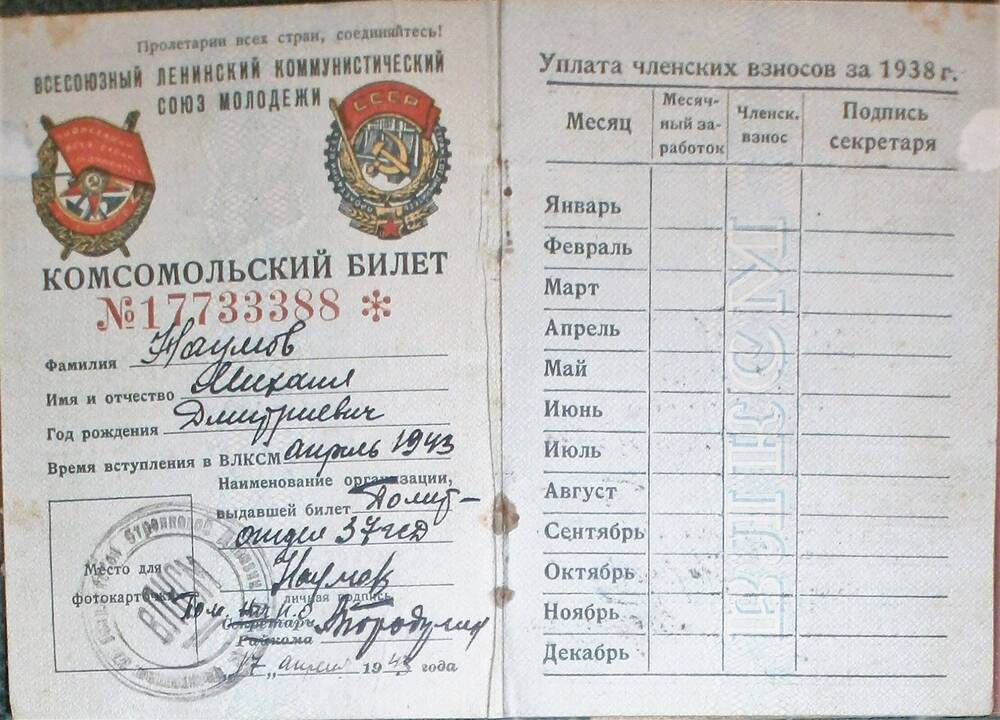 Пролетарии всех стран, соединяйтесь!
ВСЕСОЮЗНЫЙ ЛЕНИНСКИЙ КОММУНИСТИЧЕСКИЙ
СОЮЗ МОЛОДЕЖИ
СССР
КОМСОМОЛЬСКИЙ БИЛЕТ
№17733388 *
Фамилия Наумов
Имя и отчество Михаил
Год рождения Дмитриевич
Время вступления в ВЛКСМ апрель 1943
Наименование организации,
выдавшей билет Полит-
отдел 37 гсд
Место для
фотокарточки
ВЛКСМ
Наумов
личная подпись
Пом. Нач П.О
Секретарь
Райкома
"17" апреля 1943 года
Уплата членских взносов за 1938 г.
Месяц
Месяч-
ный за-
работок
Членск.
взнос
Подпись
секретаря
Январь
Февраль
Март
Апрель
Май
Июнь
Июль
Август
Сентябрь
Октябрь
Ноябрь
Декабрь
ВЛКСМ